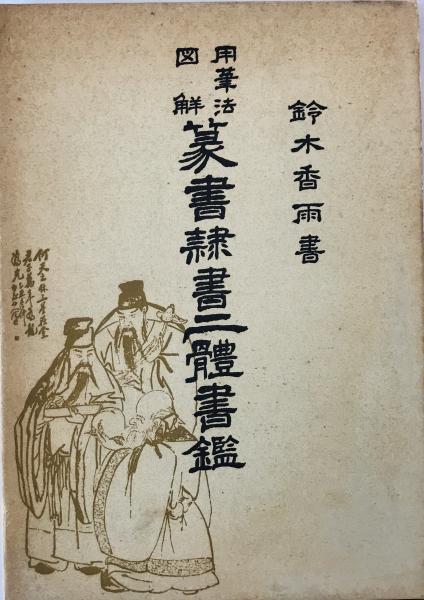 鈴木香雨書
用筆法
図解
篆書隷書二體書鑑